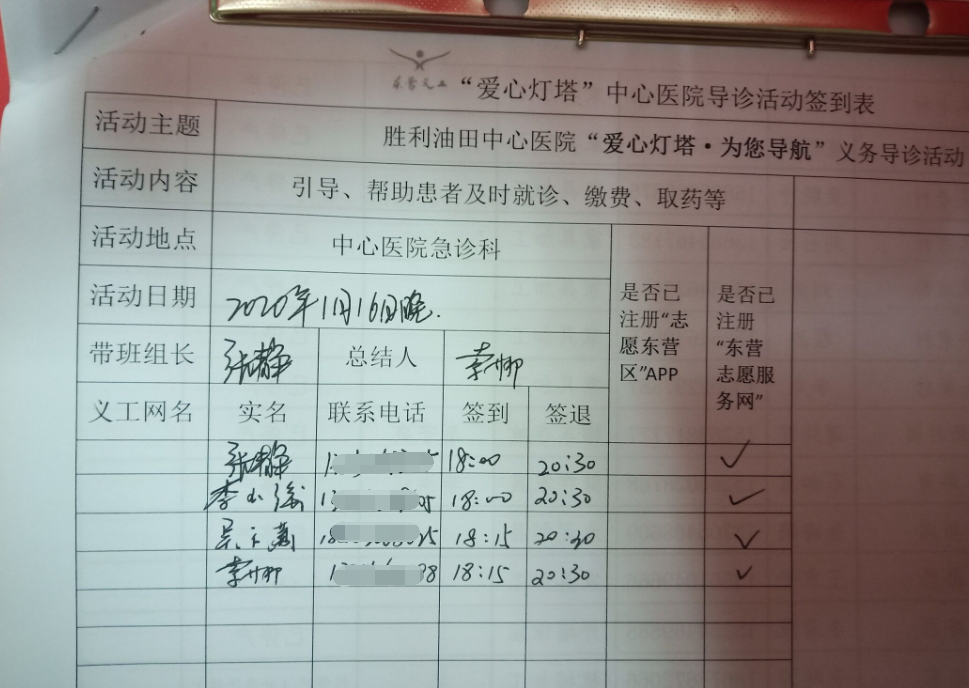 东营义工
“爱心灯塔”中心医院导诊活动签到表
活动主题 胜利油田中心医院“爱心灯塔·为您导航”义务导诊活动
活动内容 引导、帮助患者及时就诊、缴费、取药等
活动地点 中心医院急诊科
活动日期 2020年1月16日晚.
是否已注册“志愿东营区”APP
是否已注册“东营志愿服务网”
带班组长 张静 总结人 李娜
义工网名 实名 联系电话 签到 签退
张静 18:00 20:30 ✓
李小 18:00 20:30 ✓
18:15 20:30 ✓
李娜 18:15 20:30 ✓